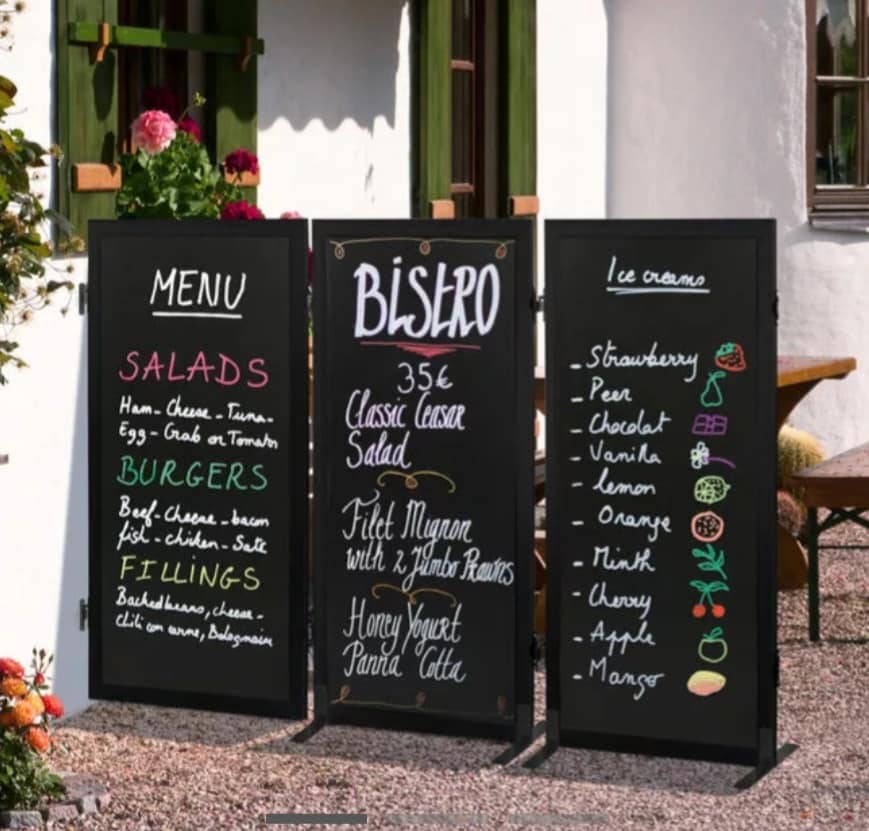 MENU
SALADS
Ham - Cheese - Tuna -
Egg - Grab or Tomato
BURGERS
Beef - Cheese - bacon
fish - chiken - Sate
FILLINGS
Backed beans, cheese -
Chili con carne, Bolognaise
BISTRO
35€
Classic Ceasar
Salad
Filet Mignon
with 2 Jumbo Prawns
Honey Yogurt
Panna Cotta
Ice creams
- Strawberry
- Peer
- Chocolat
- Vanilla
- lemon
- Orange
- Minth
- Cherry
- Apple
- Mango